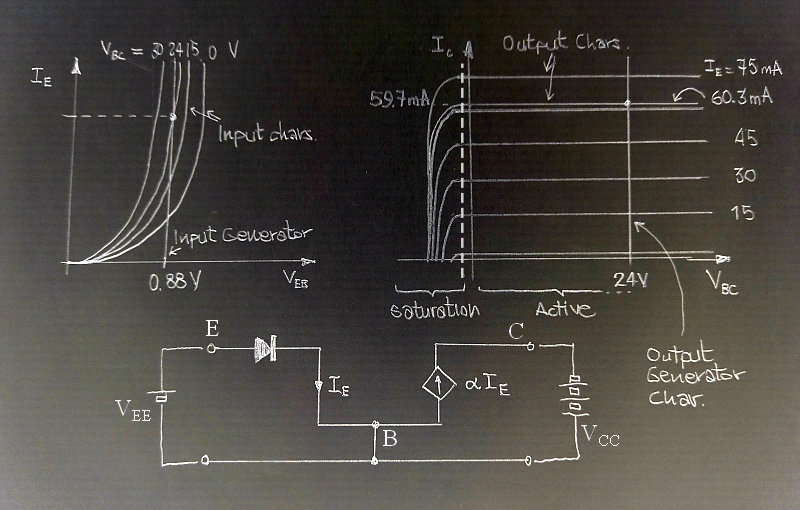 V_BC = 30 24 15 0 V
I_E
Input chars.
Input Generator
0.88V
V_EB
I_c
Output Chars.
I_E = 75mA
59.7mA
60.3mA
45
30
15
24V
V_BC
Saturation
Active
Output
Generator
Char.
E
I_E
V_EE
B
C
αI_E
V_CC